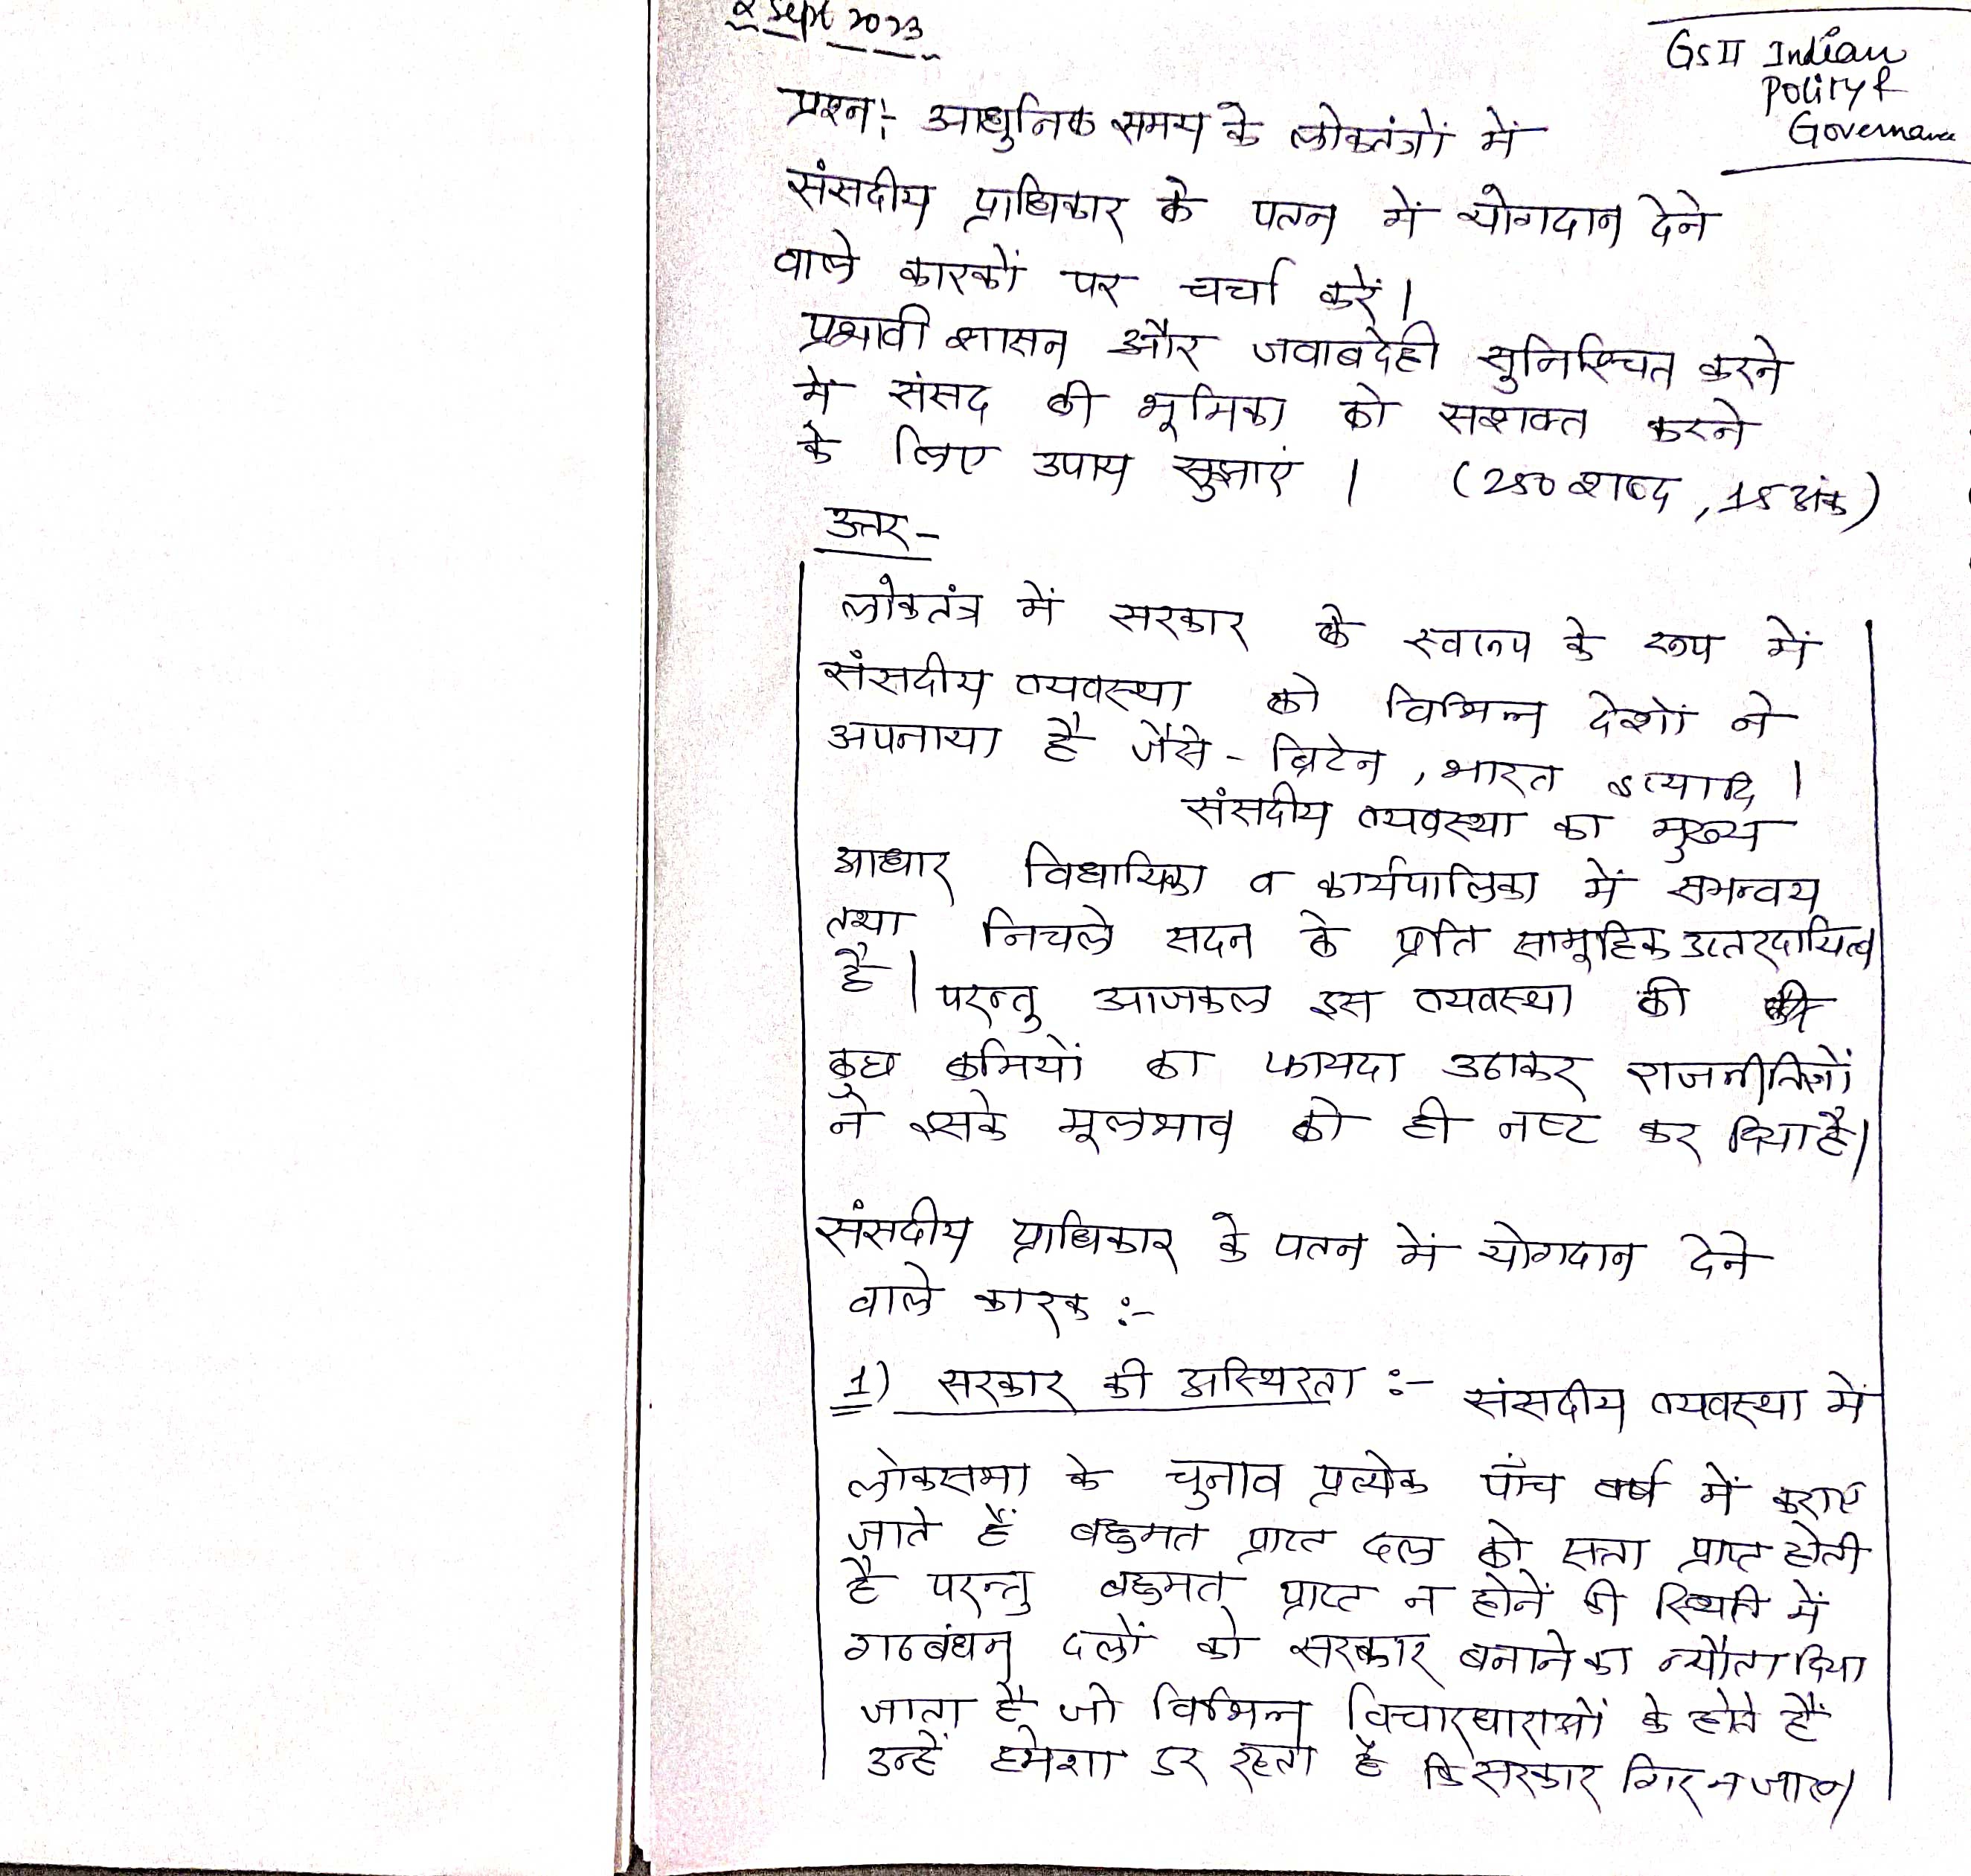 2 Sept 2023
GS II Indian
Polity &
Governance
प्रश्न:- आधुनिक समय के लोकतंत्रों में
संसदीय प्राधिकार के पतन में योगदान देने
वाले कारकों पर चर्चा करें।
प्रभावी शासन और जवाबदेही सुनिश्चित करने
में संसद की भूमिका को सशक्त करने
के लिए उपाय सुझाएं। (250 शब्द, 15 अंक)
उत्तर-
लोकतंत्र में सरकार के स्वरूप के रूप में
संसदीय व्यवस्था को विभिन्न देशों ने
अपनाया है जैसे - ब्रिटेन, भारत इत्यादि।
संसदीय व्यवस्था का मुख्य
आधार विधायिका व कार्यपालिका में समन्वय
तथा निचले सदन के प्रति सामूहिक उत्तरदायित्व
है। परन्तु आजकल इस व्यवस्था की
कुछ कमियों का फायदा उठाकर राजनीतिज्ञों
ने इसके मूलभाव को ही नष्ट कर दिया है।
संसदीय प्राधिकार के पतन में योगदान देने
वाले कारक :-
1) सरकार की अस्थिरता :- संसदीय व्यवस्था में
लोकसभा के चुनाव प्रत्येक पाँच वर्ष में कराए
जाते हैं बहुमत प्राप्त दल को सत्ता प्राप्त होती
है परन्तु बहुमत प्राप्त न होनें की स्थिति में
गठबंधन दलों को सरकार बनाने का न्यौता दिया
जाता है जो विभिन्न विचारधाराओं के होते हैं
उन्हें हमेशा डर रहता है कि सरकार गिर न जाए।